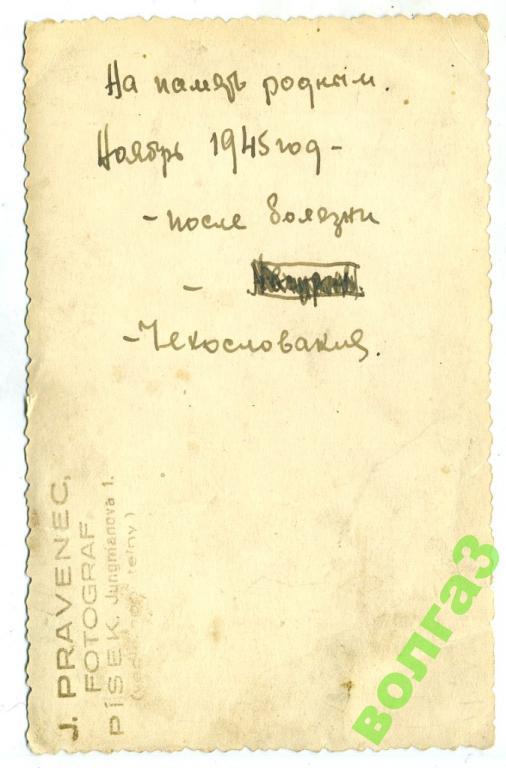 На память родным.
Ноябрь 1945 год -
- после болезни
-
- Чехословакия.
J. PRAVENEC,
FOTOGRAF
PÍSEK, Jungmanova 1.
волга3